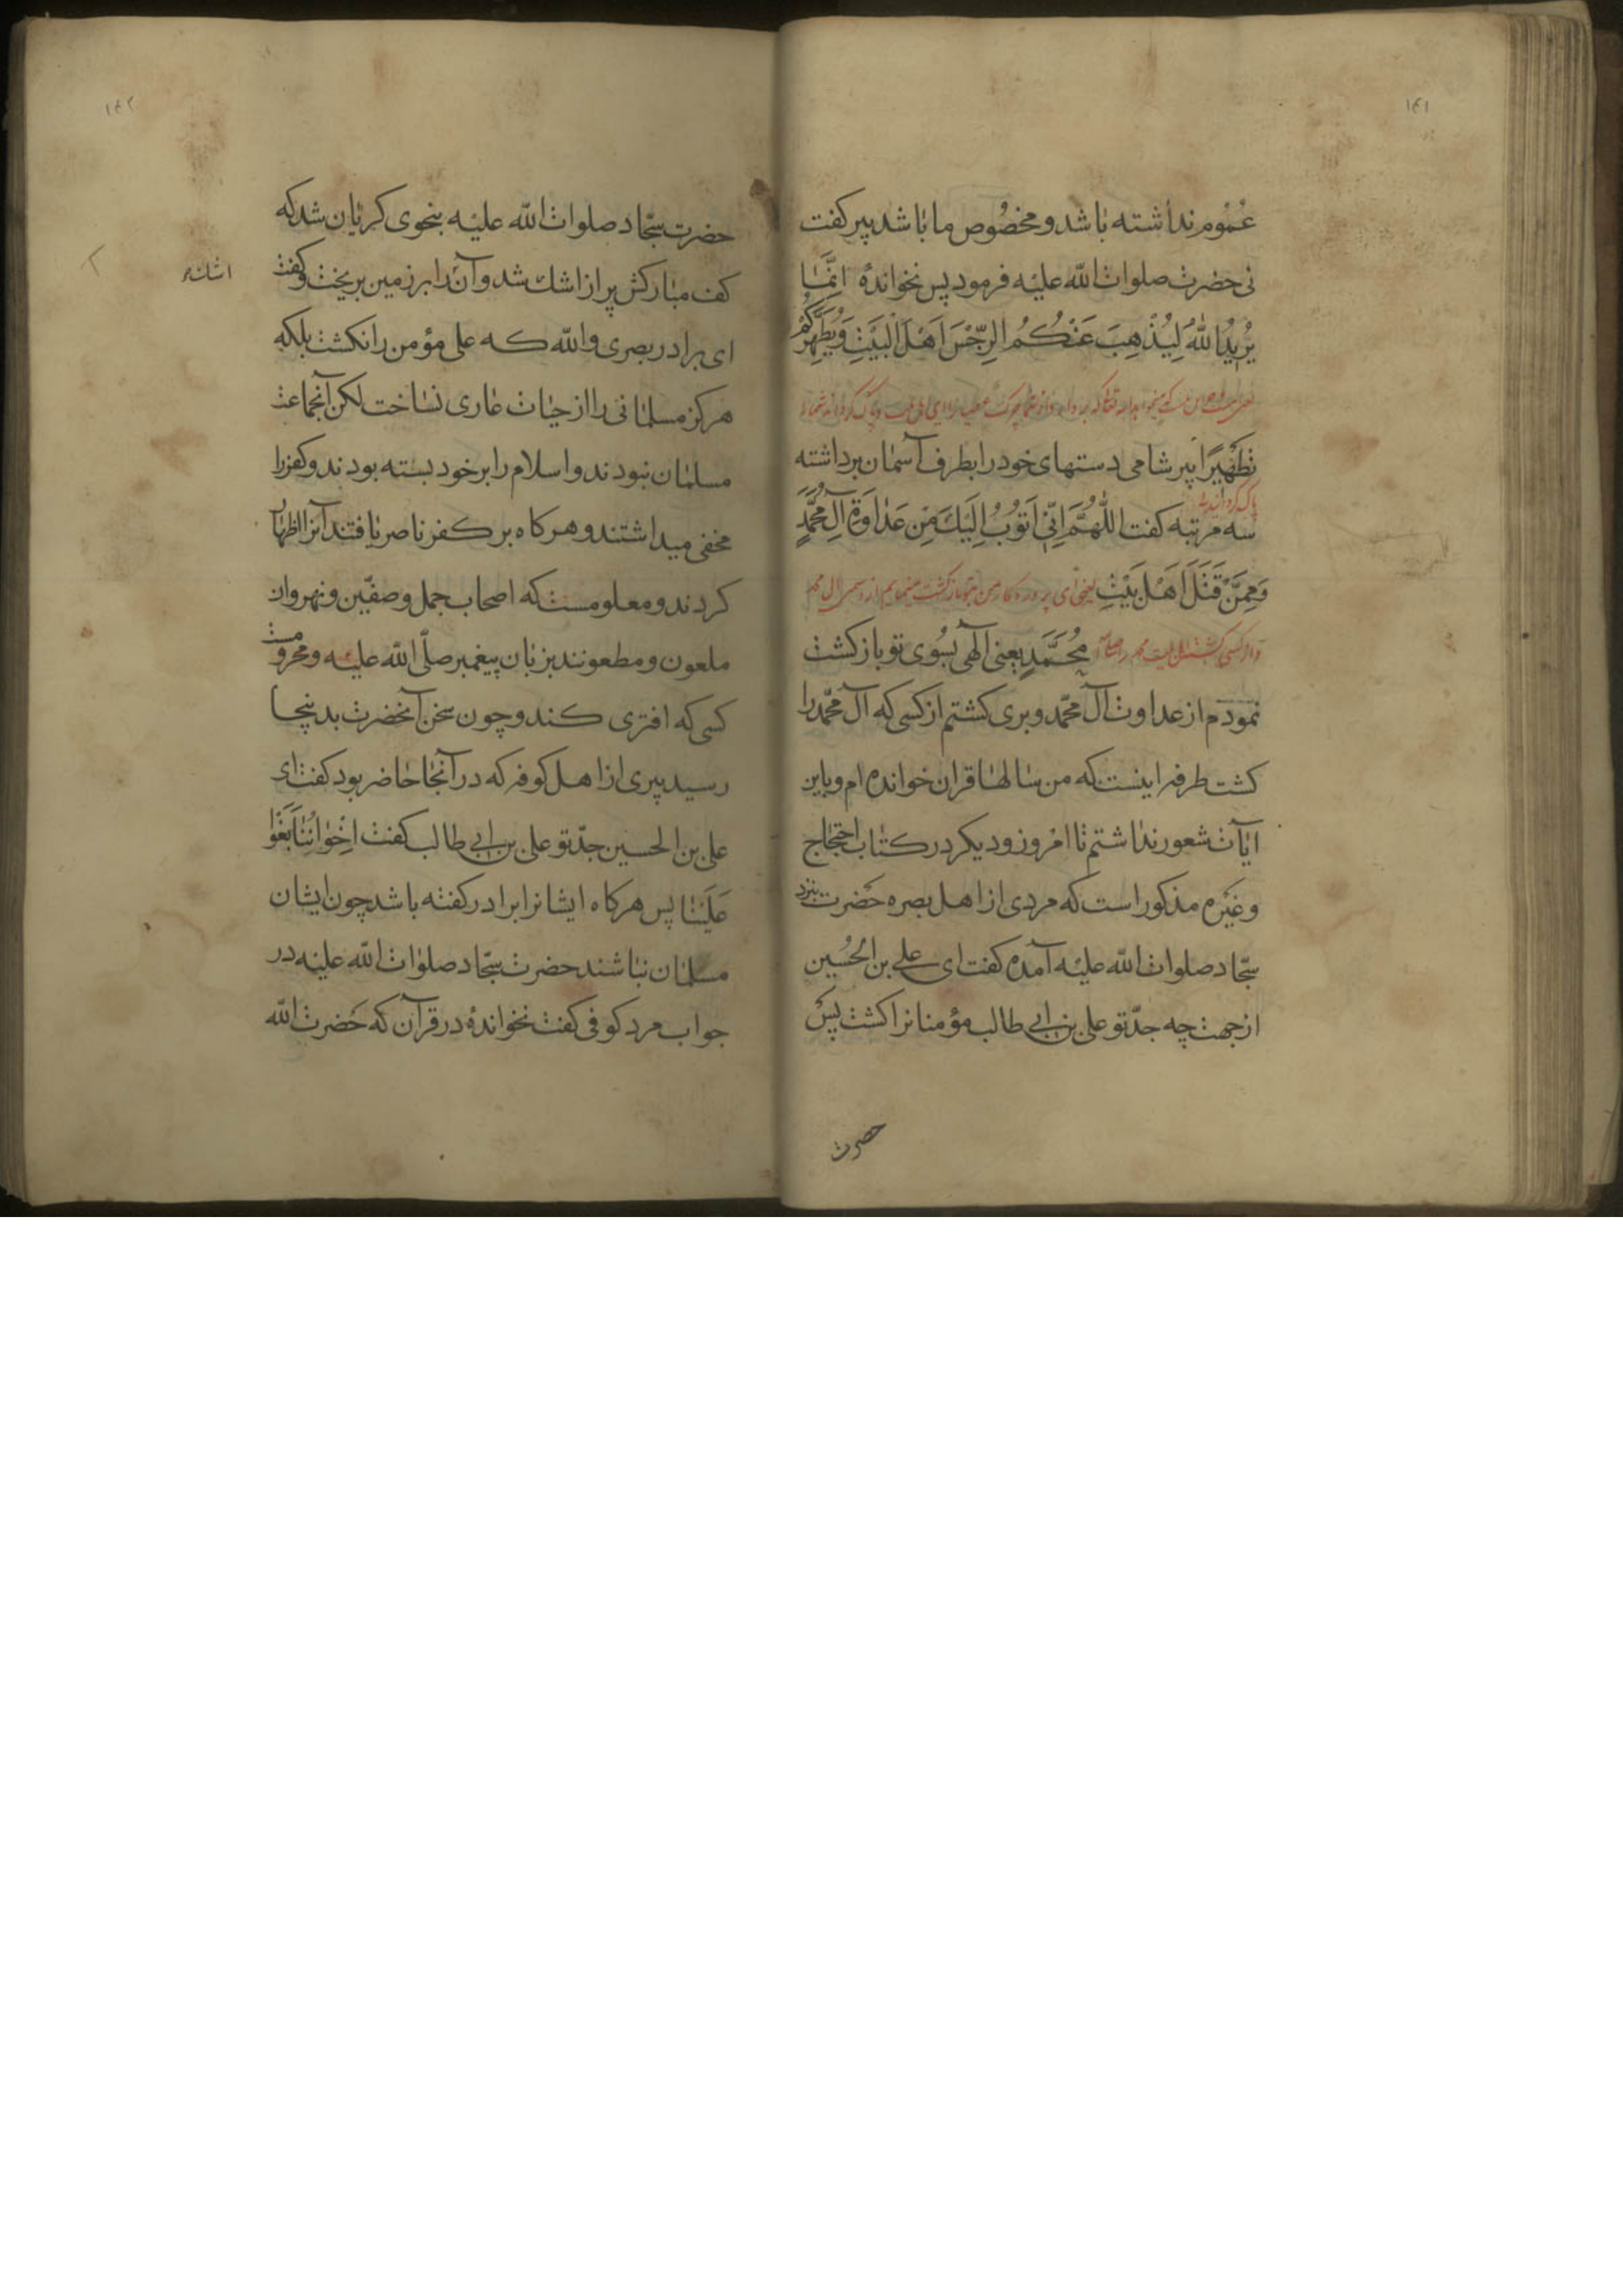 ۱۴۱
عُمُوم نداشته باشد و مخصُوص ما باشد پیر کفت
نی حضرت صلوات الله علیه فرمود پس نخوانده اِنَّمَا
یُرِیدُ اللهُ لِیُذْهِبَ عَنْکُمُ الرِّجْسَ اَهْلَ الْبَیْتِ وَیُطَهِّرَکُمْ
تَطْهِیرًا پیر شامی دستهای خود را بطرف آسمان برداشته
پاک کردانیدنی
سه مرتبه کفت اللّٰهُمَّ اِنِّی اَتُوبُ اِلَیْكَ مِنْ عَدَاوَةِ آلِ مُحَمَّدٍ
وَمِمَّنْ قَتَلَ اَهْلَ بَیْتِ یعنی ای پروردکار من بتو بازکشت مینمایم از دشمنی ال محمد
مُحَمَّدٍ یعنی آلهی بسُوی تو بازکشت
نمودم از عداوت آل محمّد و بری کشتم از کسی که آل محمّد را
کشت طرفه اینست که من سالها قران خوانده ام و باین
ایات شعور نداشتم تا امروز و دیکر در کتاب احتجاج
و غیره مذکور است که مردی از اهل بصره حضرت بنزد
سجّاد صلوات الله علیه آمده کفت ای علی بن الحُسین
از جهت چه جدّ تو علی بن ابی طالب مؤمنانرا کشت پس
حضرت
۱۴۲
حضرت سجّاد صلوات الله علیه بنحوی کریان شد که
کف مبارکش پر از اشك شد و آنرا بر زمین بریخت و کفت
ای برادر بصری والله که علی مؤمن را نکشت بلکه
هرکز مسلمانی را از حیات عاری نساخت لکن آنجماعت
مسلمان نبودند و اسلام را بر خود بسته بودند و کفر را
مخفی میداشتند و هرکاه بر کفر ناصر یافتند آنرا اظهار
کردند و معلومست که اصحاب جمل و صفّین و نهروان
ملعون و مطعونند بزبان پیغمبر صلّی الله علیه و محرومست
کسی که افتری کند و چون سخن آنحضرت بدینجا
رسید پیری از اهل کوفه که در آنجا حاضر بود کفت ای
علی بن الحسین جدّ تو علی بن ابی طالب کفت اِخْوَانُنَا بَغَوْا
عَلَیْنَا پس هرکاه ایشانرا برادر کفته باشد چون ایشان
مسلمان نباشند حضرت سجّاد صلوات الله علیه در
جواب مرد کوفی کفت نخواندهٔ در قرآن که حَضرت الله